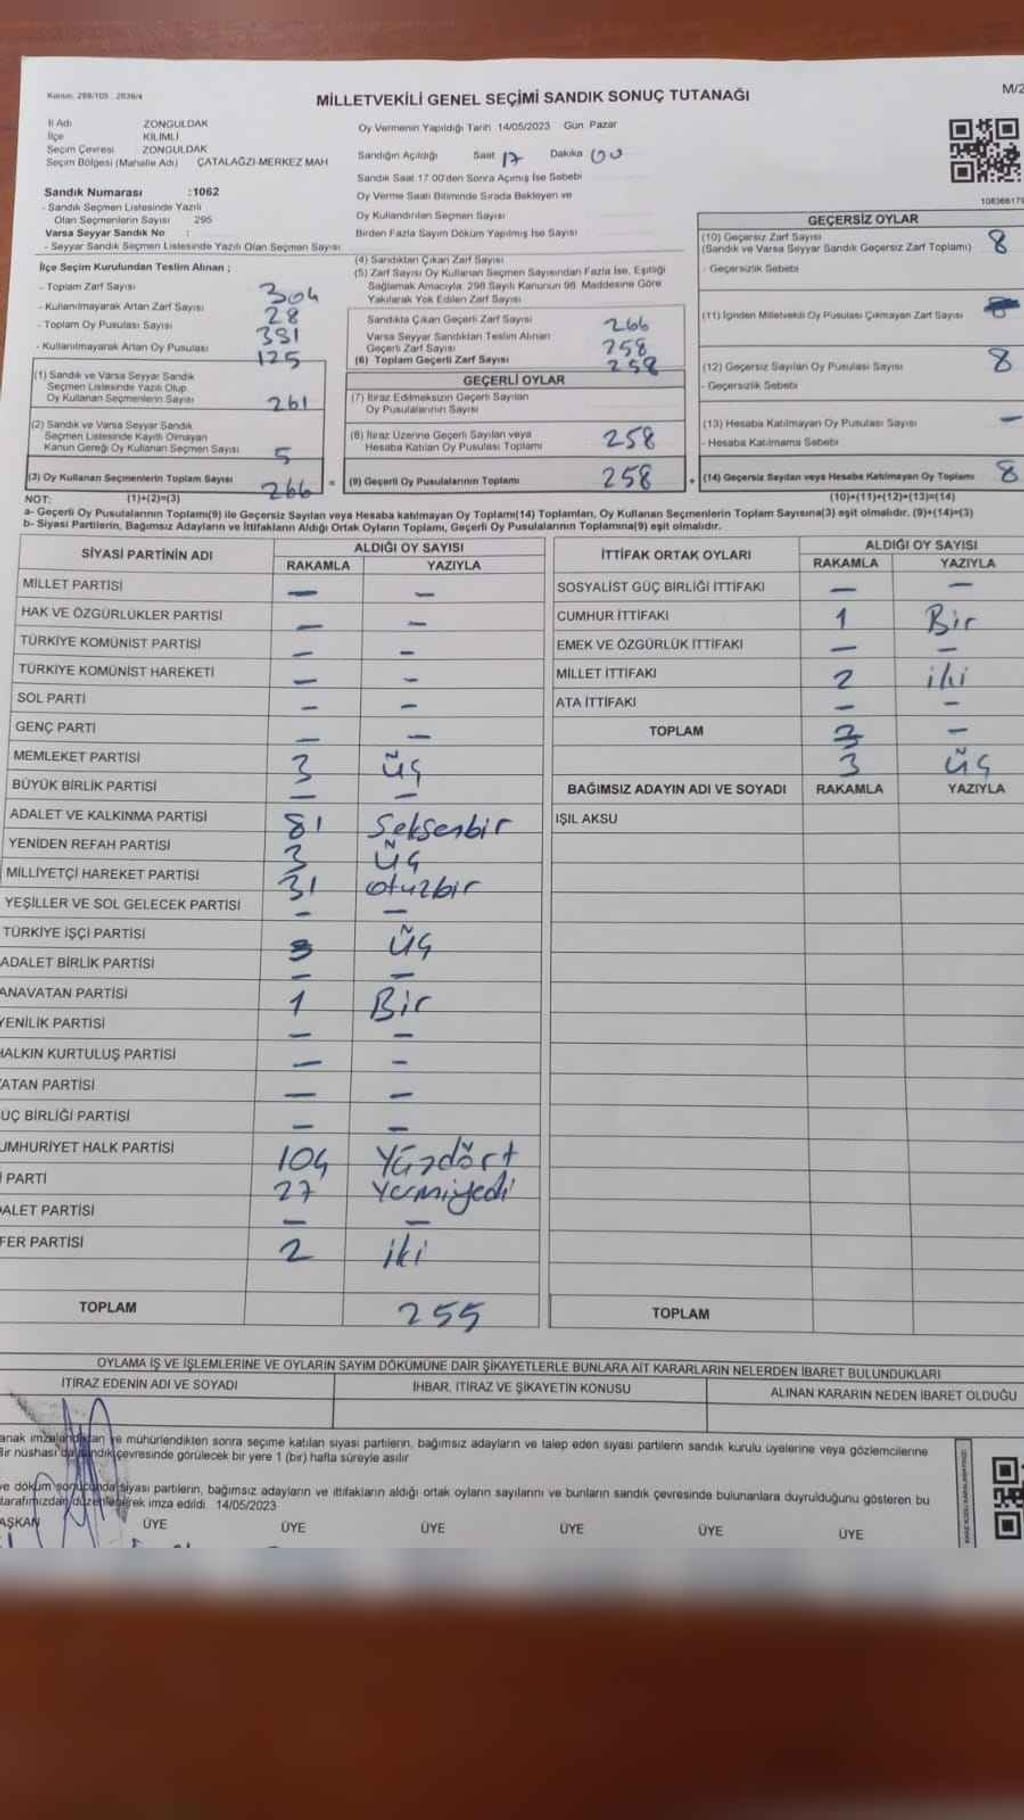 MİLLETVEKİLİ GENEL SEÇİMİ SANDIK SONUÇ TUTANAĞI
M/2
İl Adı ZONGULDAK
İlçe KİLİMLİ
Seçim Çevresi ZONGULDAK
Seçim Bölgesi (Mahalle Adı) ÇATALAĞZI-MERKEZ MAH
Sandık Numarası :1062
- Sandık Seçmen Listesinde Yazılı
Olan Seçmenlerin Sayısı 295
Varsa Seyyar Sandık No :
- Seyyar Sandık Seçmen Listesinde Yazılı Olan Seçmen Sayısı
Oy Vermenin Yapıldığı Tarih 14/05/2023 Gün Pazar
Sandığın Açıldığı Saat 17 Dakika 00
Sandık Saat 17.00'den Sonra Açımış İse Sebebi
Oy Verme Saati Bitiminde Sırada Bekleyen ve
Oy Kullandırılan Seçmen Sayısı
Birden Fazla Sayım Döküm Yapılmış İse Sayısı
İlçe Seçim Kurulundan Teslim Alınan ;
- Toplam Zarf Sayısı 304
- Kullanılmayarak Artan Zarf Sayısı 28
- Toplam Oy Pusulası Sayısı 391
- Kullanılmayarak Artan Oy Pusulası 125
(1) Sandık ve Varsa Seyyar Sandık
Seçmen Listesinde Yazılı Olup
Oy Kullanan Seçmenlerin Sayısı 261
(2) Sandık ve Varsa Seyyar Sandık
Seçmen Listesinde Kayıtlı Olmayan
Kanun Gereği Oy Kullanan Seçmen Sayısı 5
(3) Oy Kullanan Seçmenlerin Toplam Sayısı 266
(4) Sandıktan Çıkan Zarf Sayısı
(5) Zarf Sayısı Oy Kullanan Seçmen Sayısından Fazla İse, Eşitliği
Sağlamak Amacıyla 298 Sayılı Kanunun 98. Maddesine Göre
Yakılarak Yok Edilen Zarf Sayısı
Sandıkta Çıkan Geçerli Zarf Sayısı 266
Varsa Seyyar Sandıktan Teslim Alınan
Geçerli Zarf Sayısı 258
(6) Toplam Geçerli Zarf Sayısı 258
GEÇERLİ OYLAR
(7) İtiraz Edilmeksizin Geçerli Sayılan
Oy Pusulalarının Sayısı
(8) İtiraz Üzerine Geçerli Sayılan veya
Hesaba Katılan Oy Pusulası Toplamı 258
= (9) Geçerli Oy Pusulalarının Toplamı 258
GEÇERSİZ OYLAR
(10) Geçersiz Zarf Sayısı 8
(Sandık ve Varsa Seyyar Sandık Geçersiz Zarf Toplamı)
- Geçersizlik Sebebi
(11) İçinden Milletvekili Oy Pusulası Çıkmayan Zarf Sayısı
(12) Geçersiz Sayılan Oy Pusulası Sayısı 8
- Geçersizlik Sebebi
(13) Hesaba Katılmayan Oy Pusulası Sayısı -
- Hesaba Katılmama Sebebi
+ (14) Geçersiz Sayılan veya Hesaba Katılmayan Oy Toplamı 8
NOT: (1)+(2)=(3)
(10)+(11)+(12)+(13)=(14)
a- Geçerli Oy Pusulalarının Toplamı(9) ile Geçersiz Sayılan veya Hesaba katılmayan Oy Toplamı(14) Toplamları, Oy Kullanan Seçmenlerin Toplam Sayısına(3) eşit olmalıdır. (9)+(14)=(3)
b- Siyasi Partilerin, Bağımsız Adayların ve İttifakların Aldığı Ortak Oyların Toplamı, Geçerli Oy Pusulalarının Toplamına(9) eşit olmalıdır.
SİYASİ PARTİNİN ADI
ALDIĞI OY SAYISI
RAKAMLA YAZIYLA
MİLLET PARTİSİ - -
HAK VE ÖZGÜRLÜKLER PARTİSİ - -
TÜRKİYE KOMÜNİST PARTİSİ - -
TÜRKİYE KOMÜNİST HAREKETİ - -
SOL PARTİ - -
GENÇ PARTİ - -
MEMLEKET PARTİSİ 3 üç
BÜYÜK BİRLİK PARTİSİ - -
ADALET VE KALKINMA PARTİSİ 81 Seksenbir
YENİDEN REFAH PARTİSİ 3 üç
MİLLİYETÇİ HAREKET PARTİSİ 31 otuzbir
YEŞİLLER VE SOL GELECEK PARTİSİ - -
TÜRKİYE İŞÇİ PARTİSİ 3 üç
ADALET BİRLİK PARTİSİ - -
ANAVATAN PARTİSİ 1 Bir
YENİLİK PARTİSİ - -
HALKIN KURTULUŞ PARTİSİ - -
ATAN PARTİSİ - -
ÜÇ BİRLİĞİ PARTİSİ - -
UMHURİYET HALK PARTİSİ 104 Yüzdört
PARTİ 27 Yermiyedi
ALET PARTİSİ - -
FER PARTİSİ 2 iki
TOPLAM 255
İTTİFAK ORTAK OYLARI
ALDIĞI OY SAYISI
RAKAMLA YAZIYLA
SOSYALİST GÜÇ BİRLİĞİ İTTİFAKI - -
CUMHUR İTTİFAKI 1 Bir
EMEK VE ÖZGÜRLÜK İTTİFAKI - -
MİLLET İTTİFAKI 2 iki
ATA İTTİFAKI - -
TOPLAM 3 -
3 üç
BAĞIMSIZ ADAYIN ADI VE SOYADI RAKAMLA YAZIYLA
IŞIL AKSU
TOPLAM
OYLAMA İŞ VE İŞLEMLERİNE VE OYLARIN SAYIM DÖKÜMÜNE DAİR ŞİKAYETLERLE BUNLARA AİT KARARLARIN NELERDEN İBARET BULUNDUKLARI
İTİRAZ EDENİN ADI VE SOYADI İHBAR, İTİRAZ VE ŞİKAYETİN KONUSU ALINAN KARARIN NEDEN İBARET OLDUĞU
anak imzalandıktan ve mühürlendikten sonra seçime katılan siyasi partilerin, bağımsız adayların ve talep eden siyasi partilerin sandık kurulu üyelerine veya gözlemcilerine
Bir nüshası da sandık çevresinde görülecek bir yere 1 (bir) hafta süreyle asılır
ve döküm sonucunda siyasi partilerin, bağımsız adayların ve ittifakların aldığı ortak oyların sayılarını ve bunların sandık çevresinde bulunanlara duyrulduğunu gösteren bu
tarafımızdan düzenlenerek imza edildi. 14/05/2023
AŞKAN ÜYE ÜYE ÜYE ÜYE ÜYE ÜYE